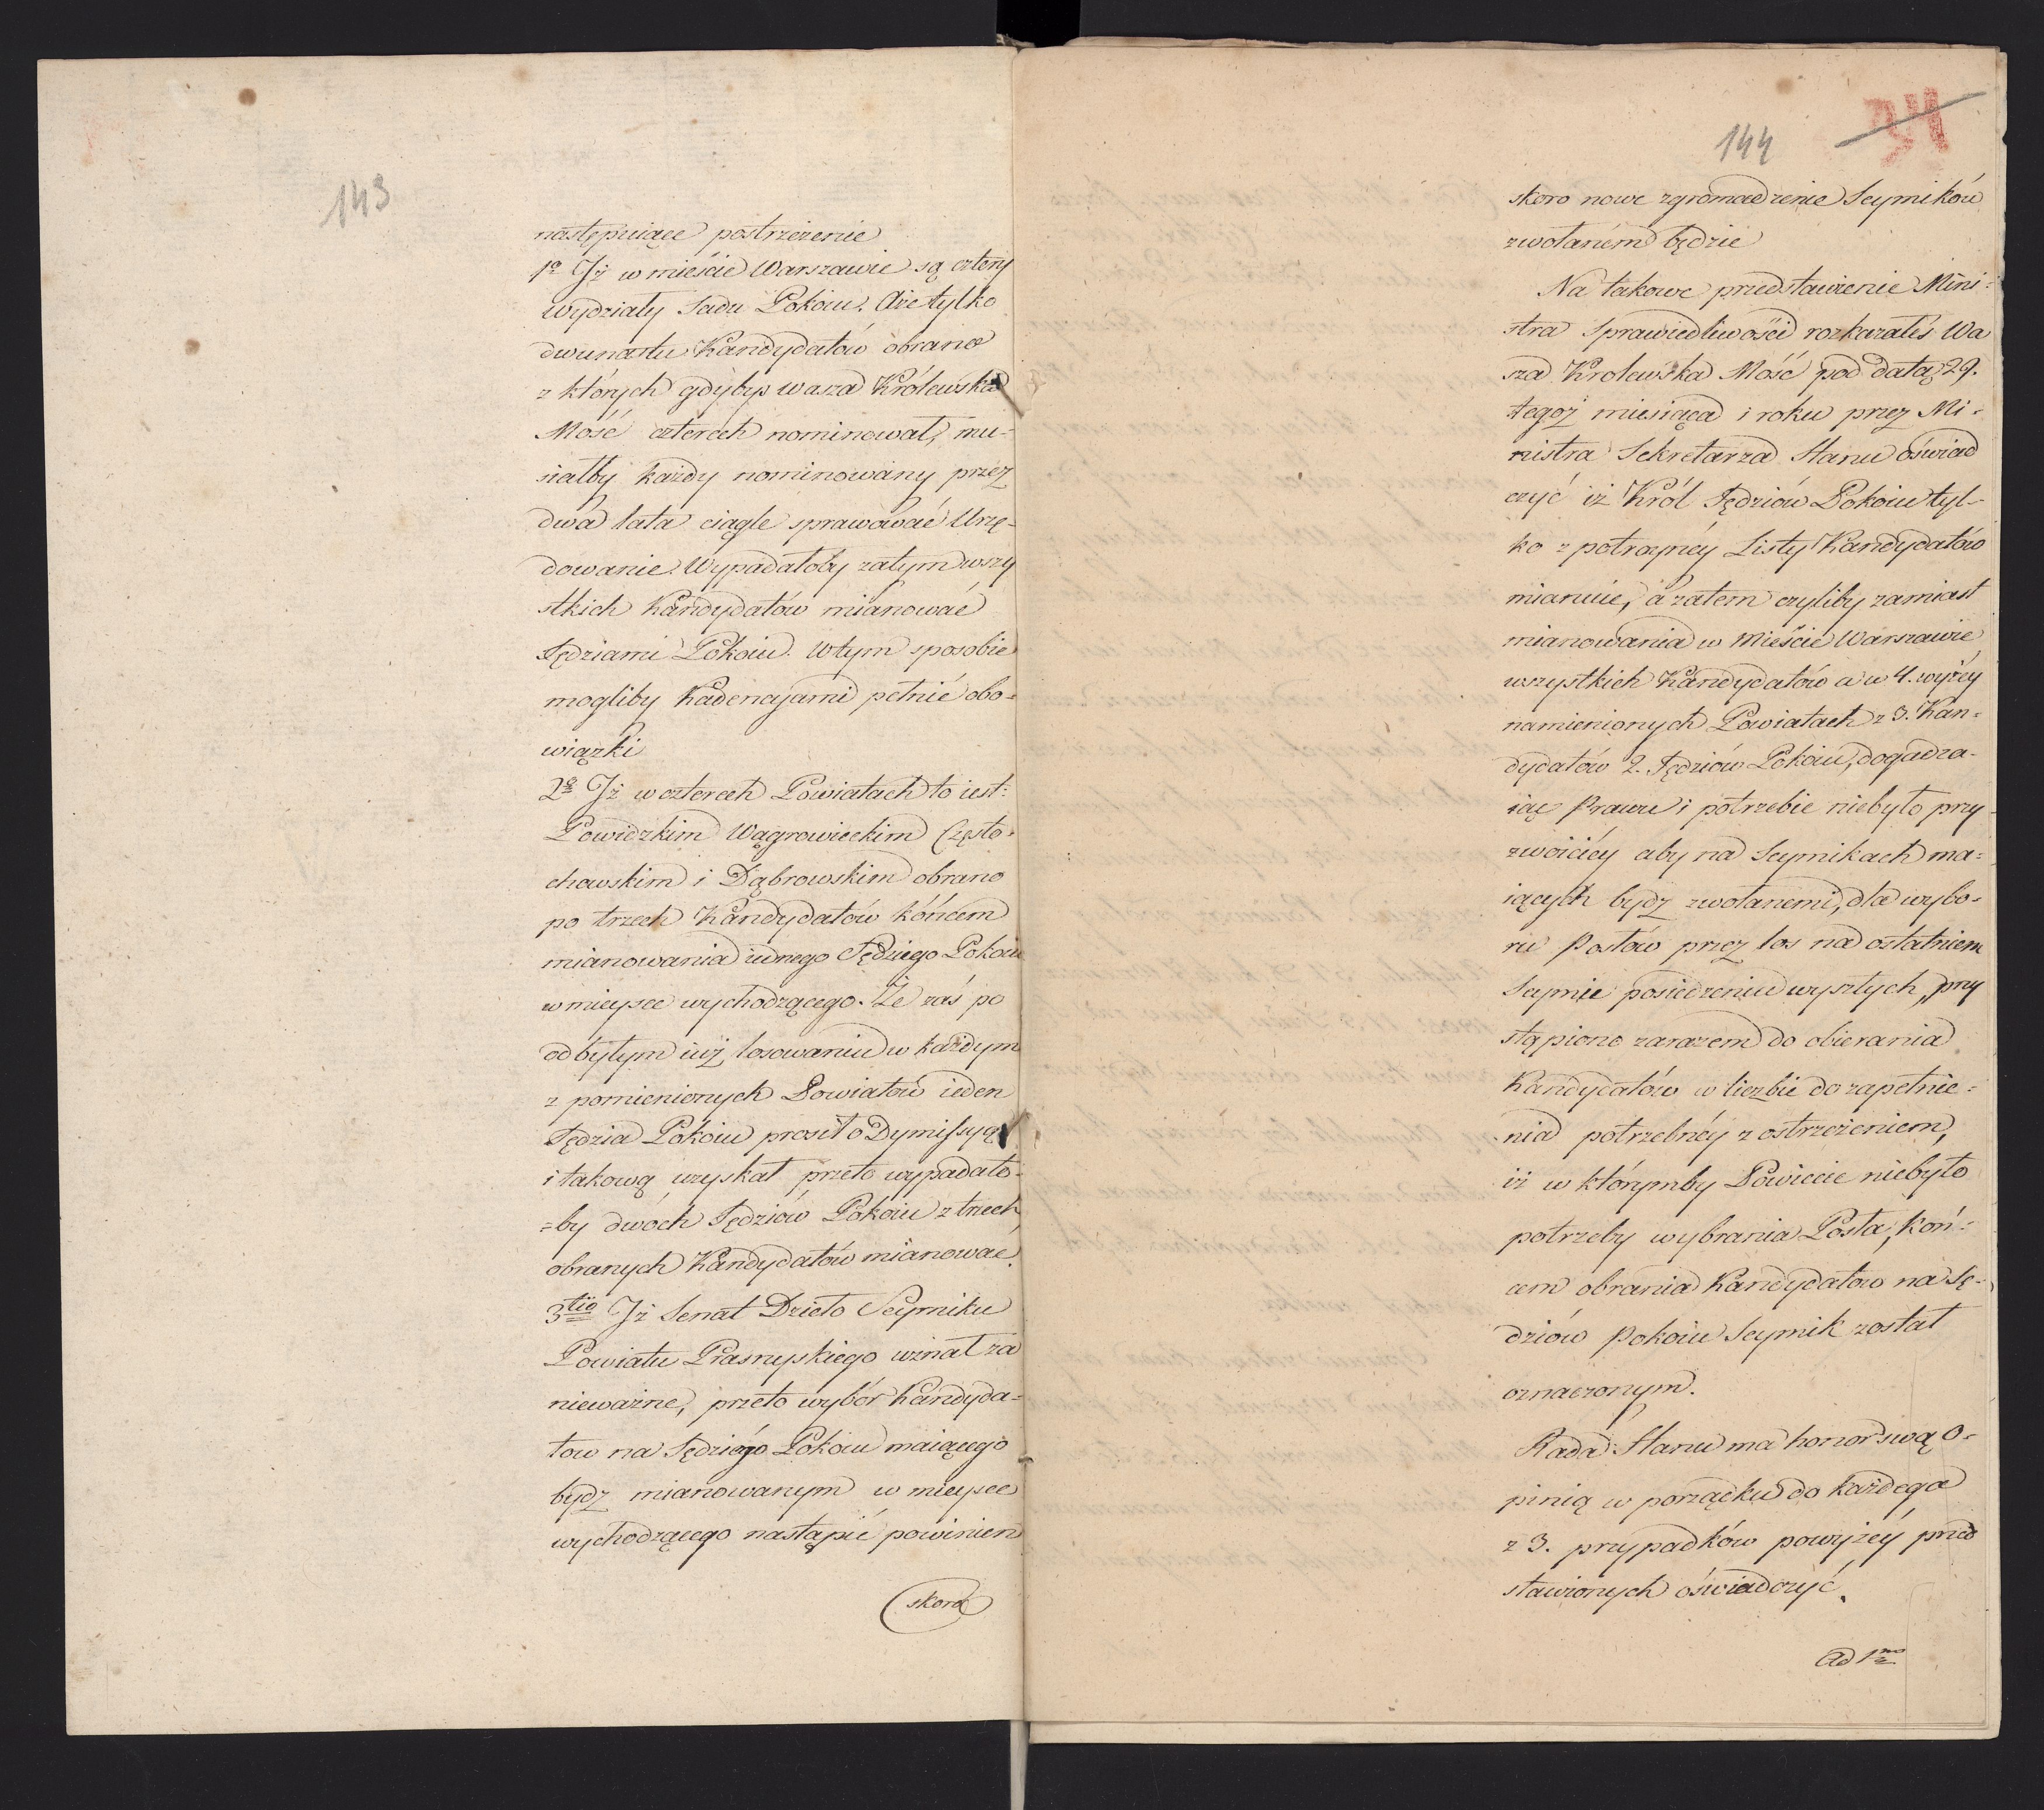 143
następuiące postrzeżenie
1o Jż w mieście Warszawie są cztery
wydziały Sadu Pokoiu. Aże tylko
dwunastu Kandydatów obrano
z których gdybyś wasza Królewska
Mość czterech nominował, mu-
siałby każdy nominowany przez
dwa lata ciągle sprawować Urzę-
dowanie. Wypadałoby zatym wszy
stkich Kandydatów mianować
Sędziami Pokoiu. Wtym sposobie
mogliby Kadencyami pełnić obo-
wiązki
2o Jż w czterech Powiatach to iest:
Powidzkim Wągrowieckim Często-
chowskim i Dąbrowskim obrano
po trzech Kandydatów końcem
mianowania iednego Sędziego Pokoiu
w mieysce wychodzącego. Że zaś po
odbytym iuż losowaniu w każdym
z pomienionych Powiatów ieden
Sędzia Pokoiu prosił o Dymissyą
i takową uzyskał przeto wypadało-
=by dwóch Sędziów Pokoiu z trzech
obranych Kandydatów mianować.
3tio Jż Senat Dzieło Seymiku
Powiatu Prasnyskiego uznał za
nieważne, przeto wybór Kandyda-
tow na Sędziego Pokoiu maiącego
bydz mianowanym w mieysce
wychodzącego nastąpić powinien
skoro
144
34
skoro nowe zgromadzenie Seymików
zwołanem będzie
Na takowe przedstawienie Mini-
stra Sprawiedliwości rozkazałeś Wa
sza Krolewska Mość pod datą 29.
tegoż miesiąca i roku przez Mi-
nistra Sekretarza Stanu oświad
czyć iż Król Sędziów Pokoiu tyl-
ko z potroynéy Listy Kandydatów
mianuie, a zatem czyliby zamiast
mianowania w Mieście Warszawie
wszystkich Kandydatów a w 4. wyżey
namienionych Powiatach z 3. Kan-
dydatów 2. Sędziów Pokoiu, dogadza-
iąc Prawu i potrzebie niebyło przy-
zwoiciéy aby na Seymikach ma-
iących bydz zwołanemi, dla wybo-
ru Posłów przez los na ostatniem
Seymie posiedzeniu wyszłych, przy
stąpiono zarazem do obierania
Kandydatów w liczbie do zapełnie-
nia potrzebnéy z ostrzeżeniem,
iż w którymby Powiecie niebyło
potrzeby wybrania Posła, koń-
cem obrania Kandydatow na Sę-
dziów Pokoiu Seymik został
oznaczonym.
Rada Stanu ma honor swą o-
pinią w porządku do każdego
z 3. przypadków powyżéy przed
stawionych oświadczyć.
Ad 1mo